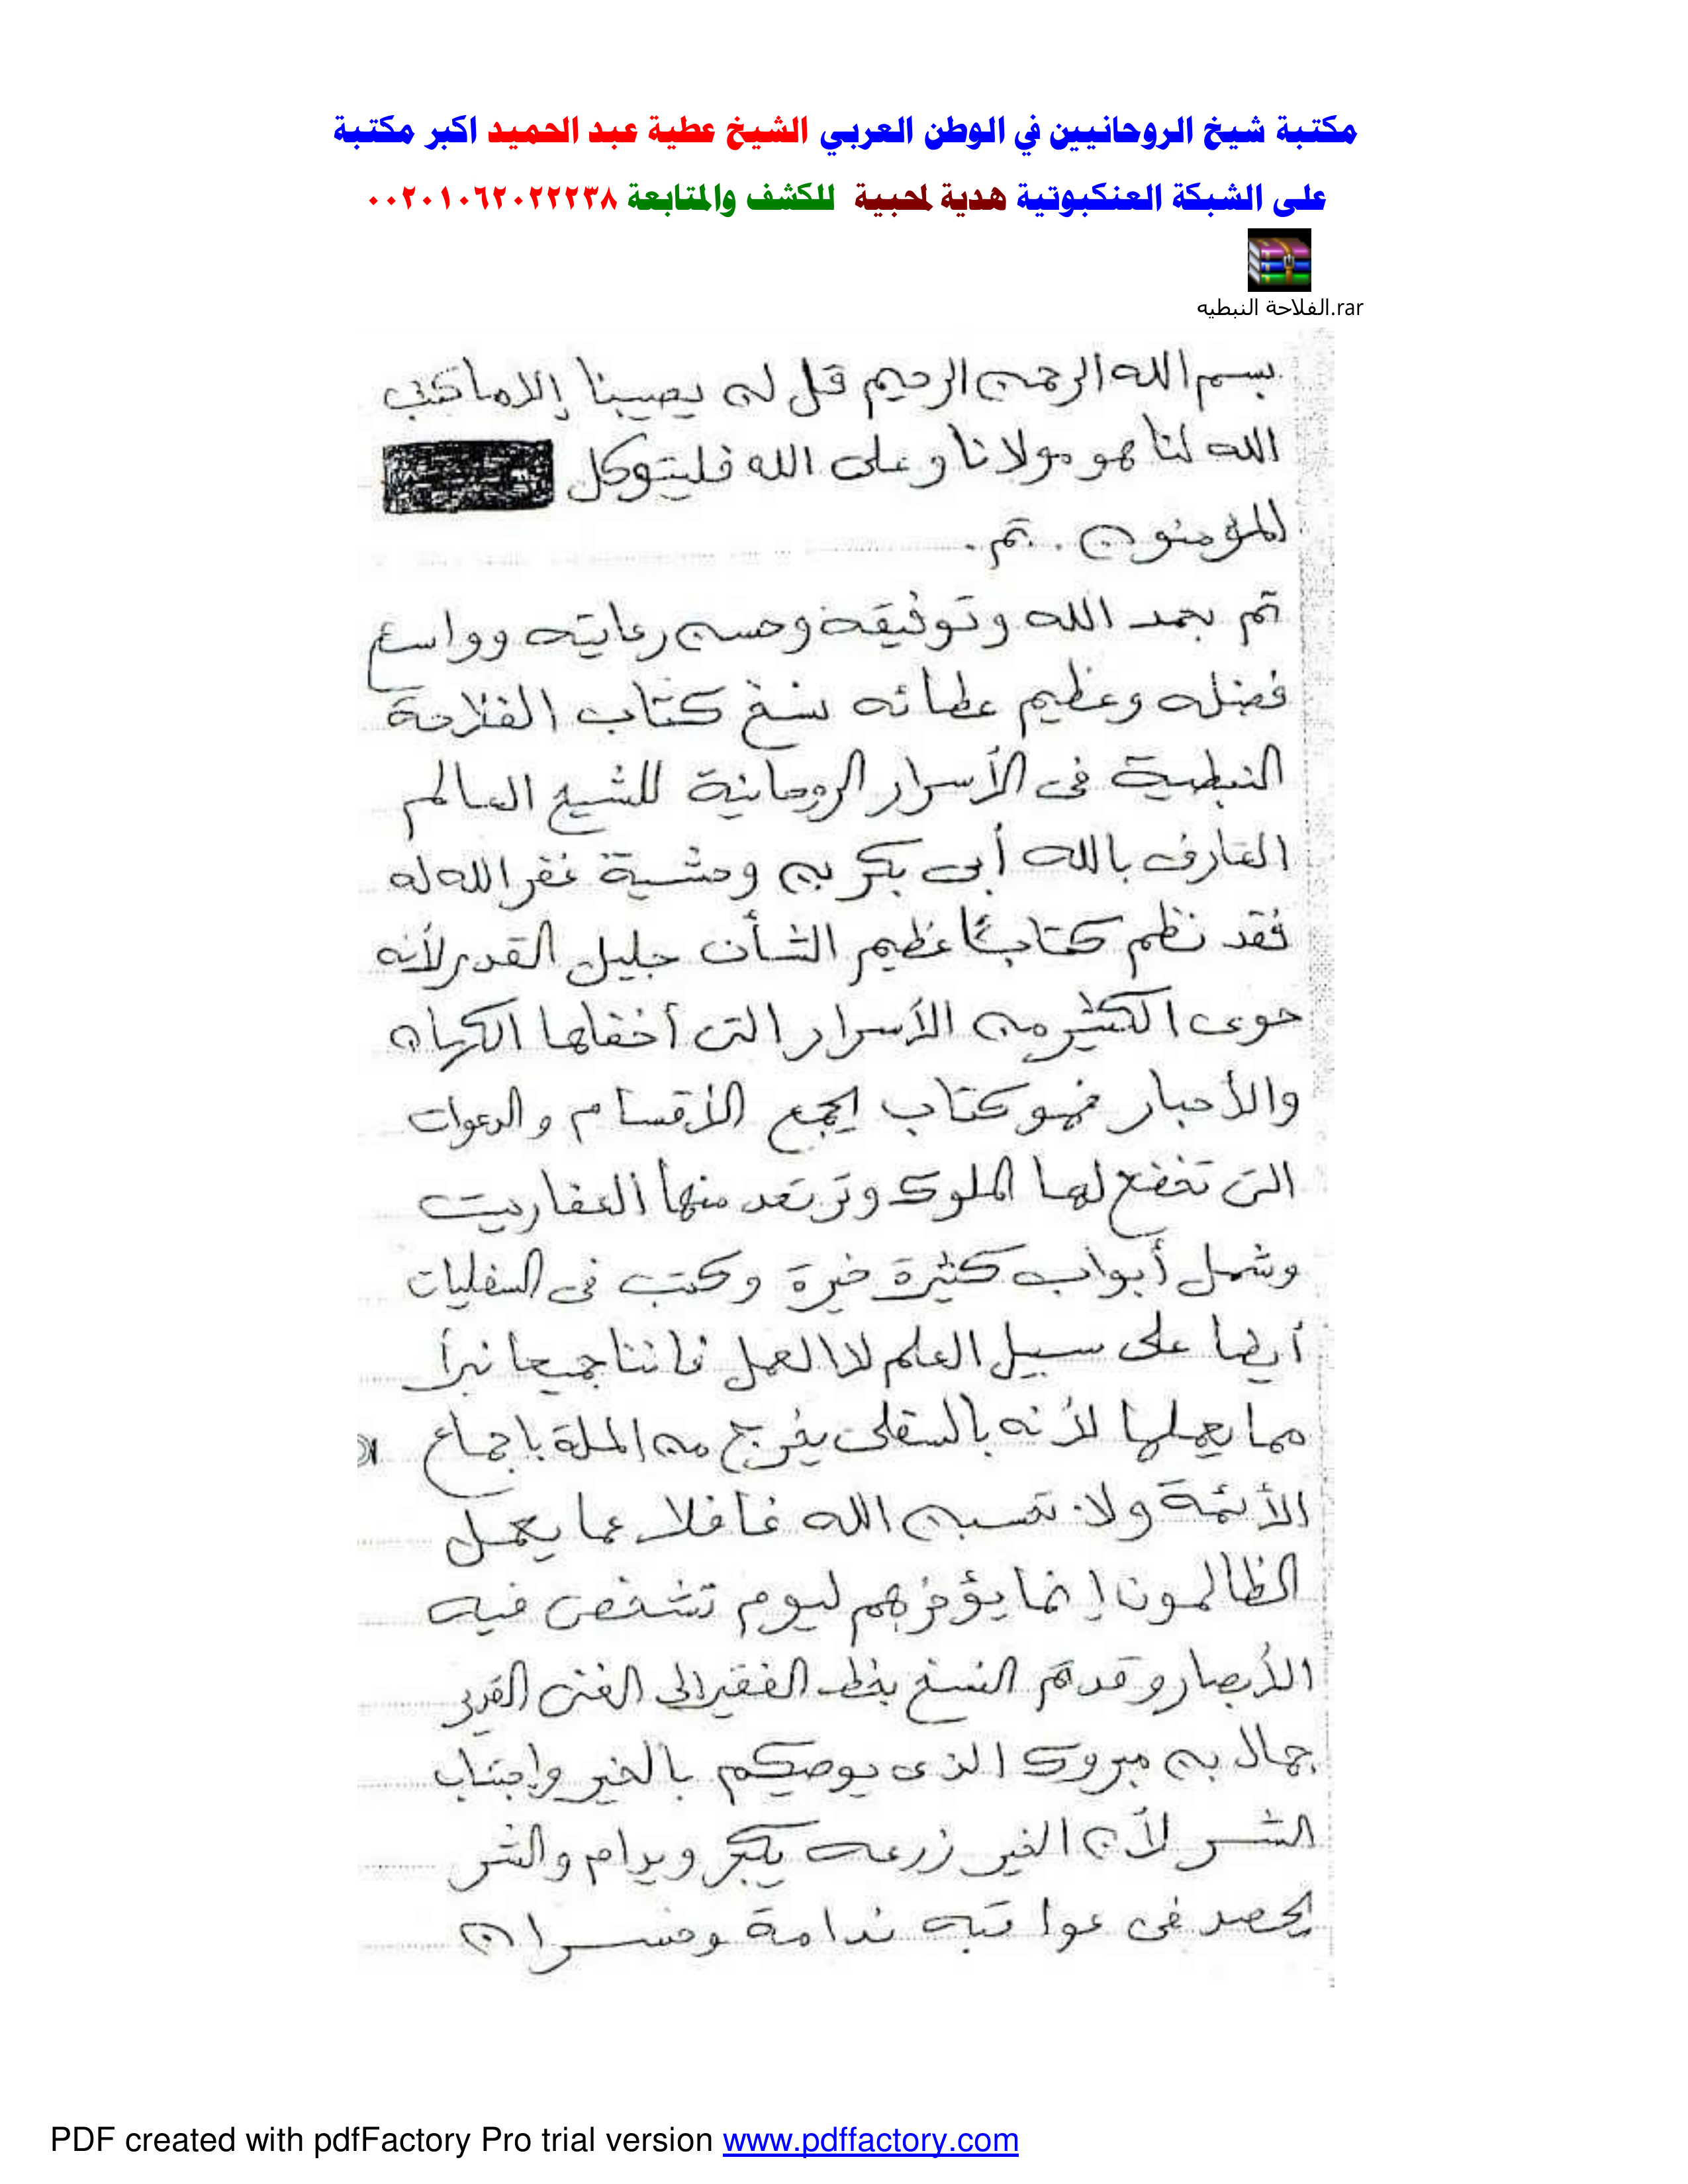 مكتبة شيخ الروحانيين في الوطن العربي الشيخ عطية عبد الحميد اكبر مكتبة
على الشبكة العنكبوتية هدية لمحبية للكشف والمتابعة ٠٠٢٠١٠٦٢٠٢٢٢٣٨
الفلاحة النبطيه.rar
بسم الله الرحمن الرحيم قل لن يصيبنا إلا ما كتب
الله لنا هو مولانا وعلى الله فليتوكل
المؤمنون . تم .
تم بحمد الله وتوفيقه وحسن رعايته وواسع
فضله وعظيم عطائه نسخ كتاب الفلاحة
النبطية فى الأسرار الروحانية للشيخ العالم
العارف بالله أبى بكر بن وحشية غفر الله له
فقد نظم كتاباً عظيم الشأن جليل القدر لأنه
حوى الكثير من الأسرار التى أخفاها الكهان
والأحبار فهو كتاب يجمع الأقسام والدعوات
التى تخضع لها الملوك وترتعد منها العفاريت
وشمل أبواب كثيرة خيرة وكتب فى السفليات
أيضا على سبيل العلم لا العمل فاننا جميعا نبرأ
مما يعملها لأنه بالسفلى يخرج من الملة باجماع
الأئمة ولا تحسبن الله غافلا عما يعمل
الظالمون إنما يؤخرهم ليوم تشخص فيه
الأبصار وقد تم النسخ بخط الفقير الى الغنى القوى
جمال بن مبروك الذى يوصيكم بالخير وإجتناب
الشر لأن الخير زرعه يكبر ويدام والشر
يحصد فى عواقبه ندامة وخسران
PDF created with pdfFactory Pro trial version www.pdffactory.com